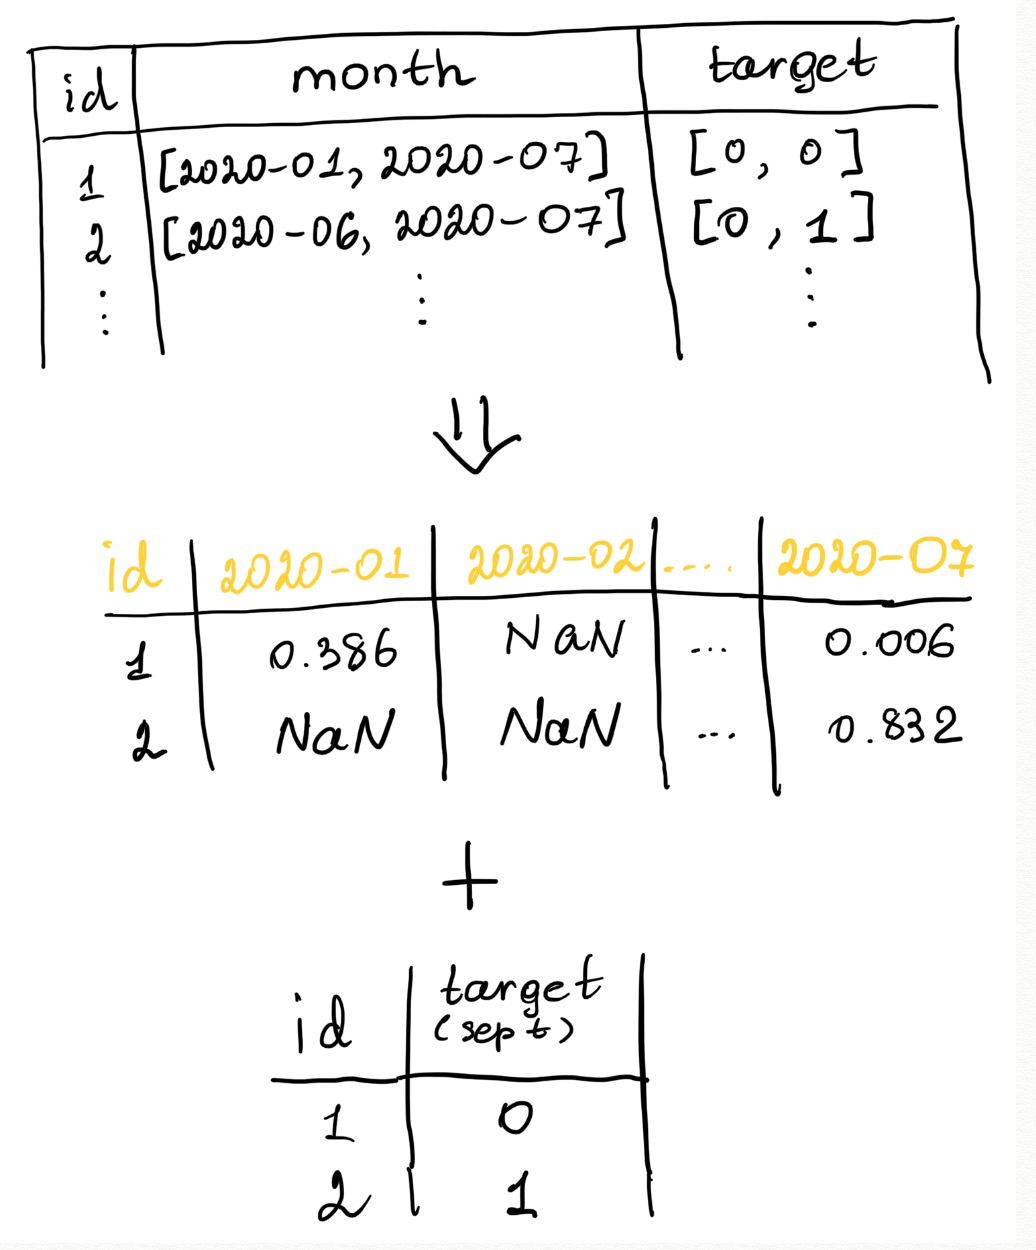 id month target
1 [2020-01, 2020-07] [0, 0]
2 [2020-06, 2020-07] [0, 1]
⋮ ⋮ ⋮
id 2020-01 2020-02 .... 2020-07
1 0.386 NaN ... 0.006
2 NaN NaN ... 0.832
+
id target
(sept)
1 0
2 1